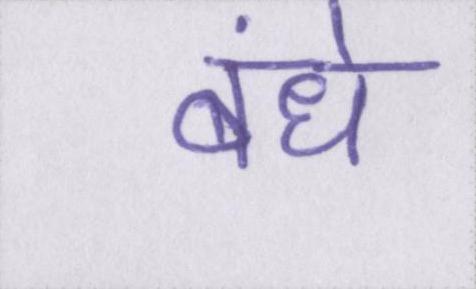 बंधे